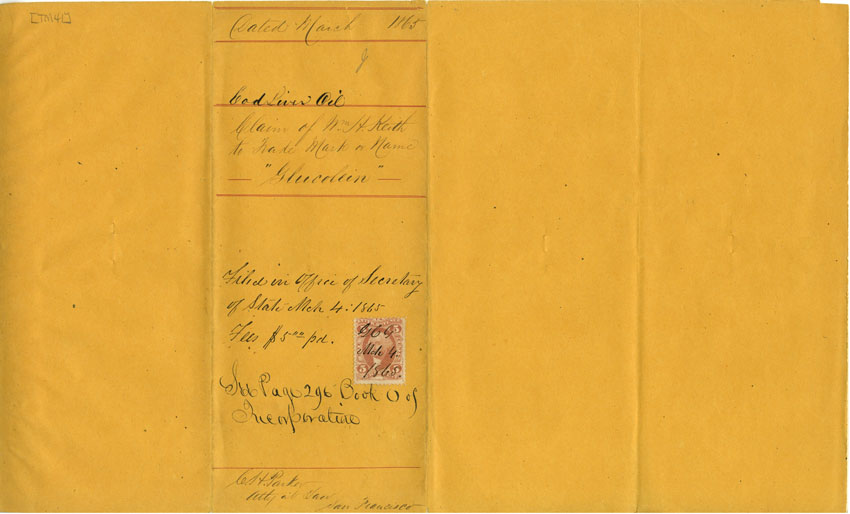 [TM41]
Dated March 1865
Cod Liver Oil
Claim of Wm H. Keith
to Trade Mark or Name
— "Glucolein" —
Filed in Office of Secretary
of State Mch 4. 1865
Fees $5.00 pd.
Mch 4.
1865.
See Page 296 Book O of
Incorporations
C. H. Parker
Atty at Law
San Francisco